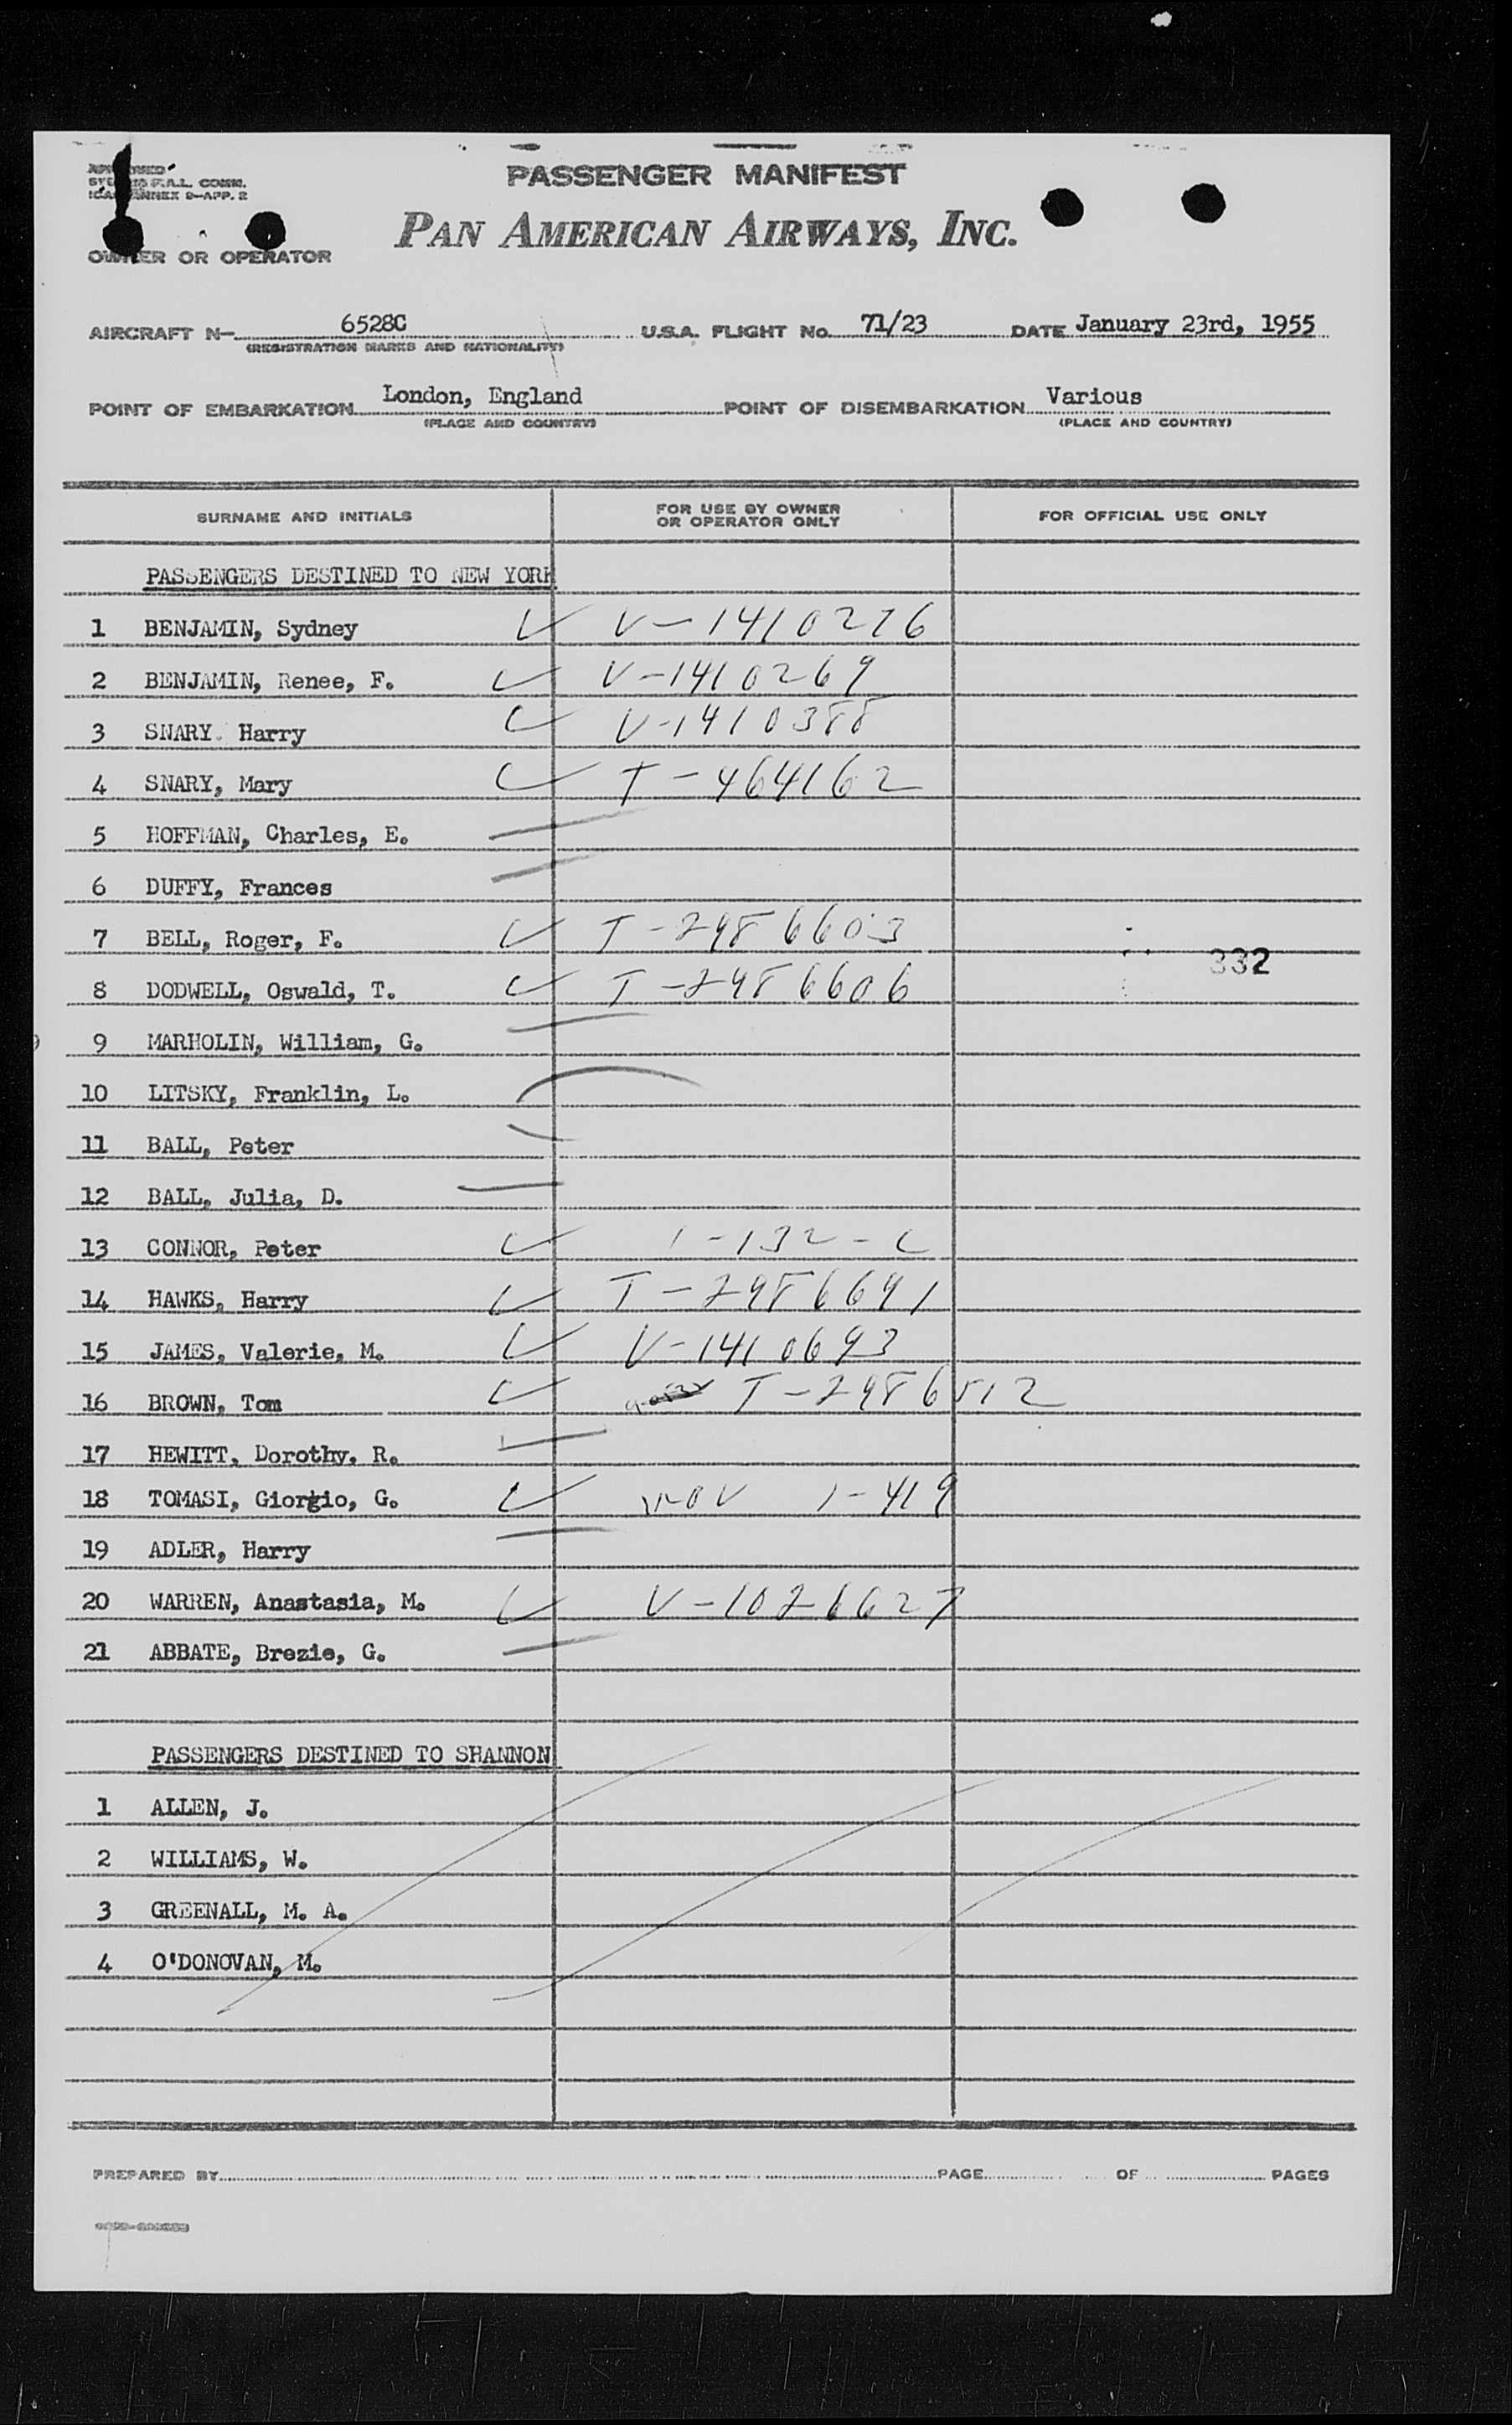 PASSENGER MANIFEST
F.A.L. COMM.
ANNEX 9-APP. 2
PAN AMERICAN AIRWAYS, INC.
OWNER OR OPERATOR
AIRCRAFT N- 6528C U.S.A. FLIGHT No. 71/23 DATE January 23rd, 1955
(REGISTRATION MARKS AND NATIONALITY)
POINT OF EMBARKATION London, England POINT OF DISEMBARKATION Various
(PLACE AND COUNTRY) (PLACE AND COUNTRY)
SURNAME AND INITIALS FOR USE BY OWNER OR OPERATOR ONLY FOR OFFICIAL USE ONLY
PASSENGERS DESTINED TO NEW YORK
1 BENJAMIN, Sydney V-1410276
2 BENJAMIN, Renee, F. V-1410269
3 SNARY Harry V-1410388
4 SNARY, Mary T-464162
5 HOFFMAN, Charles, E.
6 DUFFY, Frances
7 BELL, Roger, F. T-2986603
332
8 DODWELL, Oswald, T. T-2986606
9 MARHOLIN, William, G.
10 LITSKY, Franklin, L.
11 BALL, Peter
12 BALL, Julia, D.
13 CONNOR, Peter 1-132-C
14 HAWKS, Harry T-2986691
15 JAMES, Valerie, M. V-1410693
16 BROWN, Tom T-2986512
17 HEWITT, Dorothy, R.
18 TOMASI, Giorgio, G. 1-419
19 ADLER, Harry
20 WARREN, Anastasia, M. V-1026627
21 ABBATE, Brezie, G.
PASSENGERS DESTINED TO SHANNON
1 ALLEN, J.
2 WILLIAMS, W.
3 GREENALL, M. A.
4 O'DONOVAN, M.
PREPARED BY PAGE OF PAGES